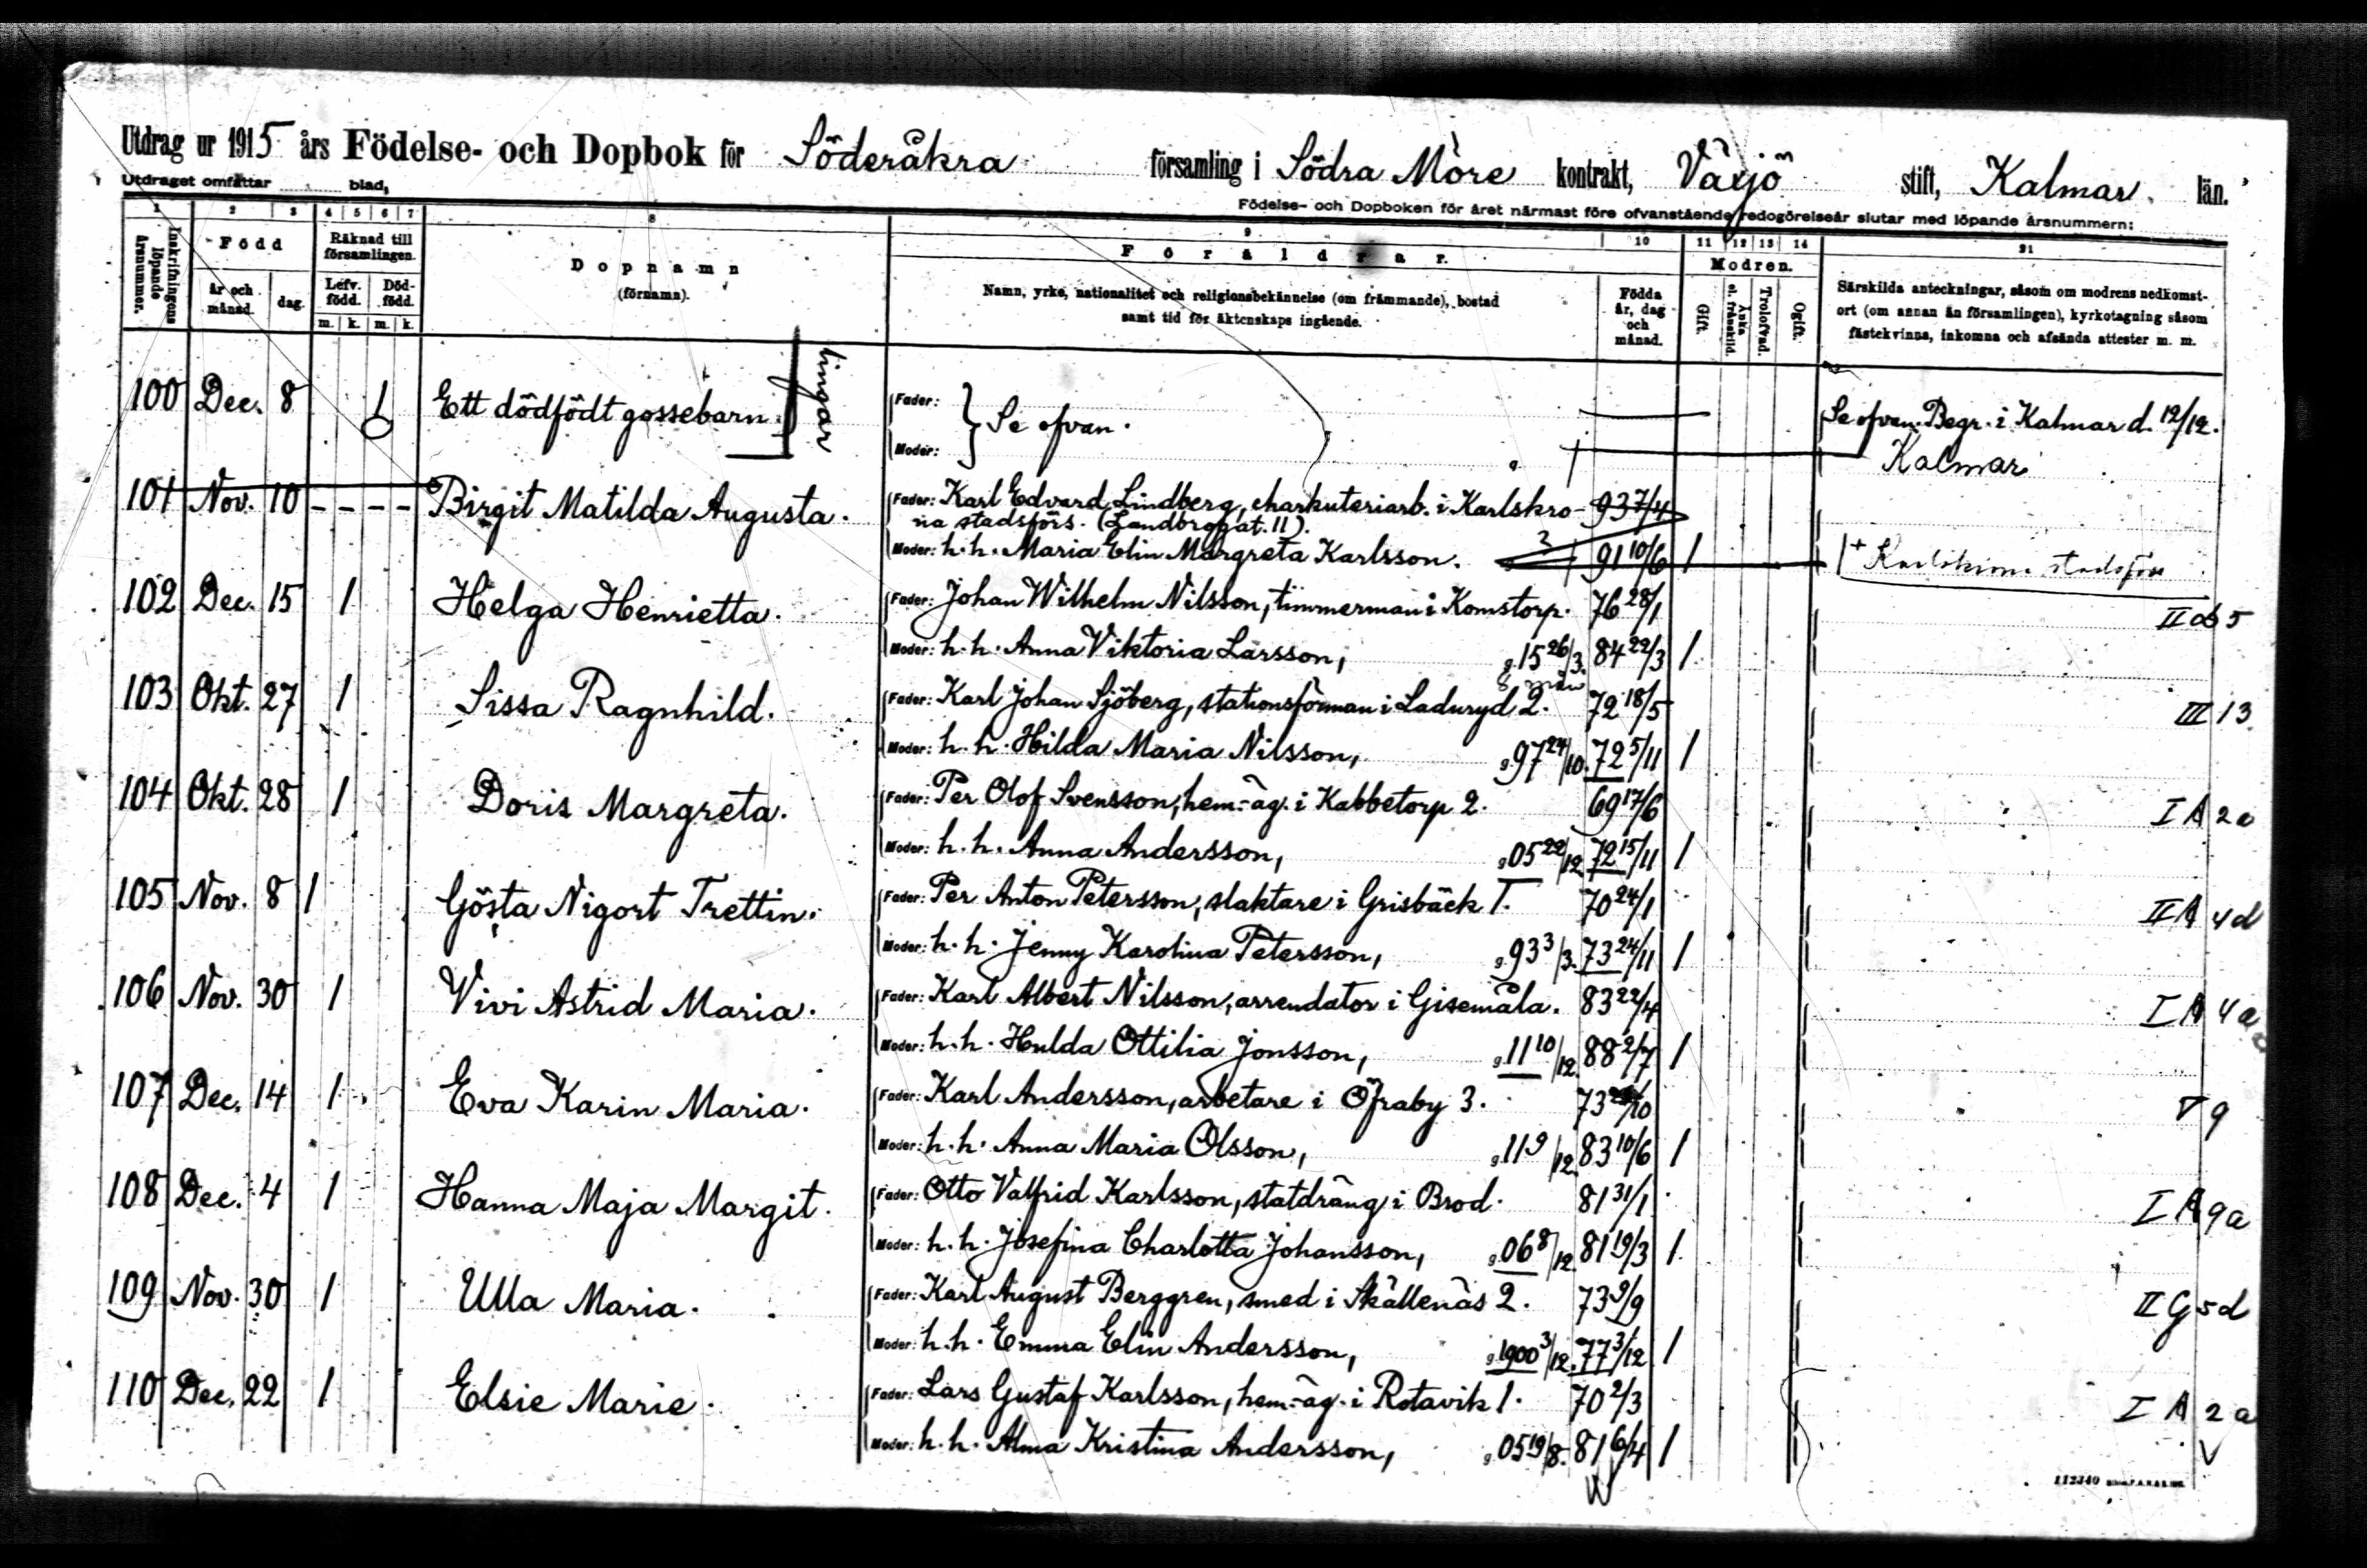 Utdrag ur 1915 års Födelse- och Dopbok för Söderåkra församling i Södra Möre kontrakt, Växjö stift, Kalmar län.
Utdraget omfattar blad,
Födelse- och Dopboken för året närmast före ofvanstående redogörelseår slutar med löpande årsnummern:
1 2 3 4 5 6 7 8 9 10 11 12 13 14 21
Inskrifningens löpande årsnummer.
Född
år och månad.
dag.
Räknad till församlingen.
Lefv. född.
Död-född.
m. k. m. k.
Dopnamn
(förnamn).
Föräldrar.
Namn, yrke, nationalitet och religionsbekännelse (om främmande), bostad
samt tid för äktenskaps ingående.
Födda år, dag och månad.
Modren.
Gift.
Änka el. frånskild.
Trolofvad.
Ogift.
Särskilda anteckningar, såsom om modrens nedkomst-
ort (om annan än församlingen), kyrkotagning såsom
fästekvinna, inkomna och afsända attester m. m.
100 Dec. 8 1 Ett dödfödt gossebarn. Fader: Se ofvan. Se ofvan. Begr. i Kalmar d. 12/12.
Moder: Kalmar
101 Nov. 10 - - - - Birgit Matilda Augusta. Fader: Karl Edvard Lindberg, charkuteriarb. i Karlskro- 93 7/4
na stadsförs. (Landbrogat. 11).
Moder: h. h. Maria Elin Margreta Karlsson. 91 10/6 1 Karlskrona stadsförs
102 Dec. 15 1 Helga Henrietta. Fader: Johan Wilhelm Nilsson, timmerman i Komstorp. 76 28/1
Moder: h. h. Anna Viktoria Larsson, g. 15 26/3. 84 22/3 1
8 mån
103 Okt. 27 1 Sissa Ragnhild. Fader: Karl Johan Sjöberg, stationsförman i Laduryd 2. 72 18/5 III 13
Moder: h. h. Hilda Maria Nilsson, g. 97 24/10. 72 5/11 1
104 Okt. 28 1 Doris Margreta. Fader: Per Olof Svensson, hem.-äg. i Kabbetorp 2. 69 17/6 I A 2
Moder: h. h. Anna Andersson, g. 05 22/12. 72 15/11 1
105 Nov. 8 1 Gösta Nigort Trettin. Fader: Per Anton Petersson, slaktare i Grisbäck 1. 70 24/1 II A 4d
Moder: h. h. Jenny Karolina Petersson, g. 93 3/3. 73 24/11 1
106 Nov. 30 1 Vivi Astrid Maria. Fader: Karl Albert Nilsson, arrendator i Gisemåla. 83 22/4 I A 4a
Moder: h. h. Hulda Ottilia Jonsson, g. 11 10/12. 88 2/7 1
107 Dec. 14 1 Eva Karin Maria. Fader: Karl Andersson, arbetare i Öfraby 3. V 9
Moder: h. h. Anna Maria Olsson, g. 11 9/12. 83 10/6 1
108 Dec. 4 1 Hanna Maja Margit. Fader: Otto Valfrid Karlsson, statdräng i Brod. 81 31/1. I A 9a
Moder: h. h. Josefina Charlotta Johansson, g. 06 8/12. 81 19/3 1.
109 Nov. 30 1 Ulla Maria. Fader: Karl August Berggren, smed i Skällenäs 2. 73 9/9 II G 5d
Moder: h. h. Emma Elin Andersson, g. 1900 3/12. 77 3/12 1
110 Dec. 22 1 Elsie Marie. Fader: Lars Gustaf Karlsson, hem.-äg. i Rotavik 1. 70 2/3 I A 2a
Moder: h. h. Alma Kristina Andersson, g. 05 19/8. 81 6/4 1